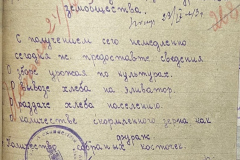 земобщества.
27/IX-43г.
С получением сего немедленно
сегодня же предоставте сведения
О зборе урожая по культурах.
О вывозе хлеба на эливатор.
О раздаче хлеба населению.
О количестве скормленого зерна как
фураж
Количество собраных косточек.